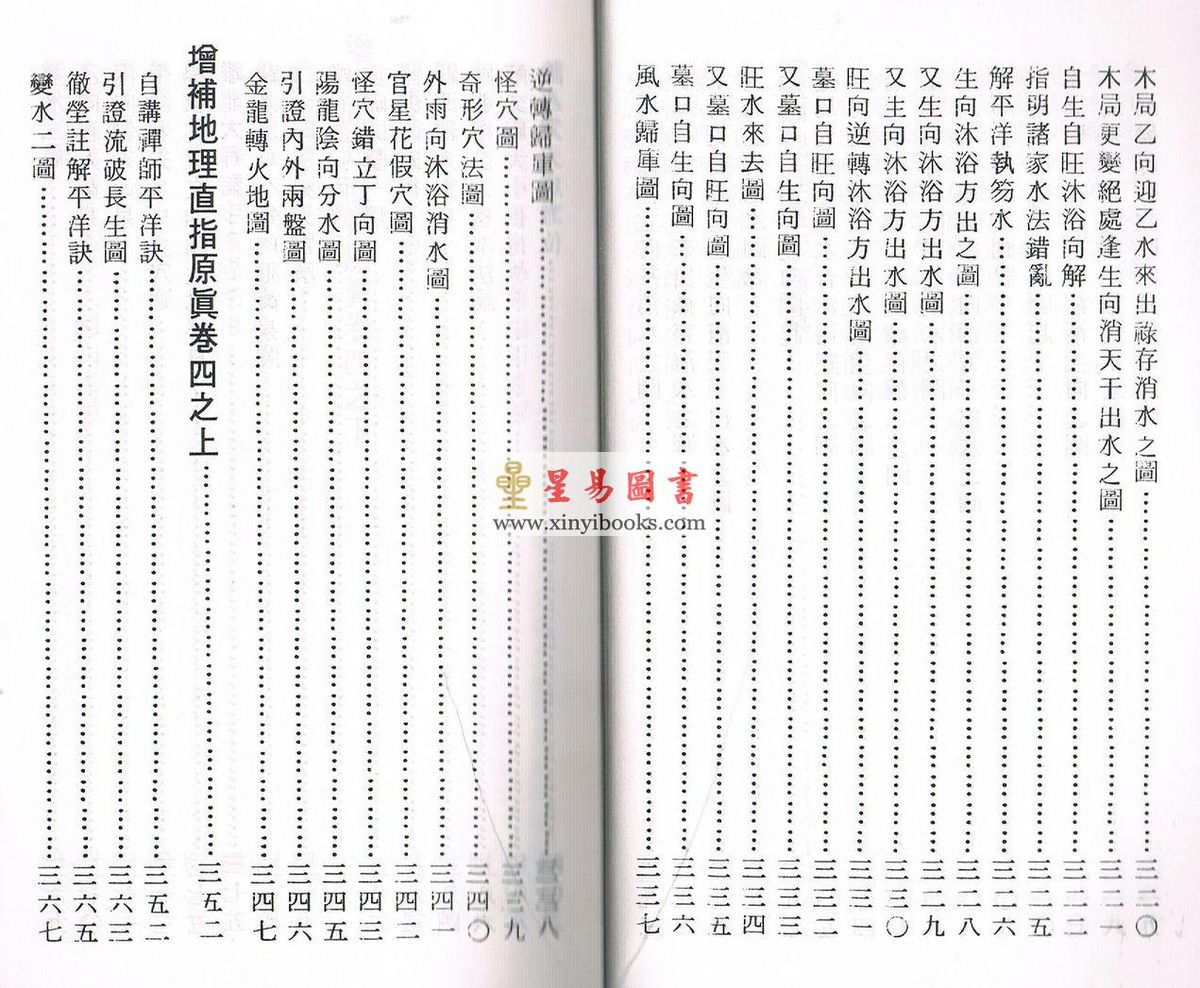 木局乙向迎乙水來出祿存消水之圖……三二〇
木局更變絕處逢生向消天干出水之圖……三二一
自生自旺沐浴向解……三二二
指明諸家水法錯亂……三二五
解平洋執笏水……三二六
生向沐浴方出之圖……三二八
又生向沐浴方出水圖……三二九
又主向沐浴方出水圖……三三〇
旺向逆轉沐浴方出水圖……三三一
墓口自旺向圖……三三二
又墓口自生向圖……三三三
旺水來去圖……三三四
又墓口自旺向圖……三三五
墓口自生向圖……三三六
風水歸庫圖……三三七
逆轉歸庫圖……三三八
怪穴圖……三三九
奇形穴法圖……三四〇
外雨向沐浴消水圖……三四一
官星花假穴圖……三四二
怪穴錯立丁向圖……三四三
陽龍陰向分水圖……三四五
引證內外兩盤圖……三四六
金龍轉火地圖……三四七
增補地理直指原眞卷四之上……三五二
自講禪師平洋訣……三五二
引證流破長生圖……三六三
徹瑩註解平洋訣……三六五
變水二圖……三六七
星易圖書
www.xinyibooks.com